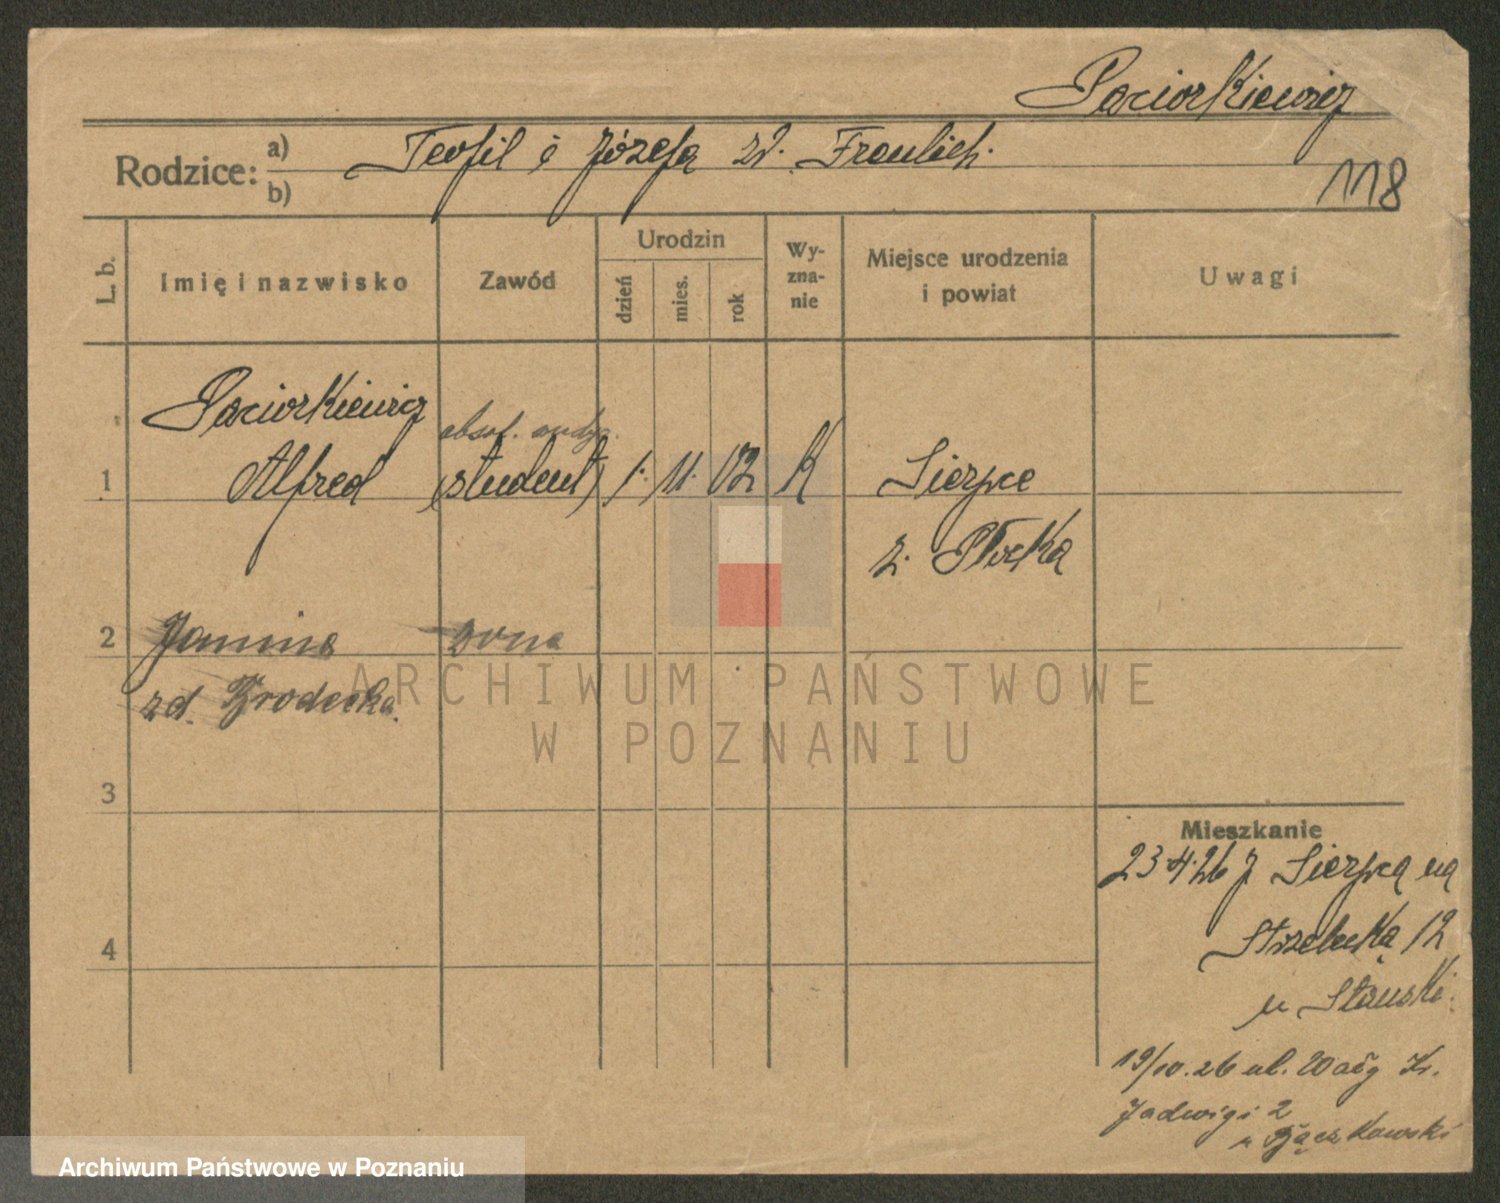 Paciorkiewicz
Rodzice: a) Teofil i Józefa zd. Fraulich.
b)
118
L. b.
Imię i nazwisko
Zawód
Urodzin
dzień
mies.
rok
Wy-
zna-
nie
Miejsce urodzenia
i powiat
Uwagi
Paciorkiewicz absol.
1 Alfred (student) 1. 11. 02 K Sierpce
z. Płocka
2 Janina żona
zd.
3
4
Mieszkanie
23.4.26 z Sierpca na
Strzelecką 12
u
19/10.26 ul. Kr.
Jadwigi 2
u Bączkowski
ARCHIWUM PAŃSTWOWE
W POZNANIU
Archiwum Państwowe w Poznaniu